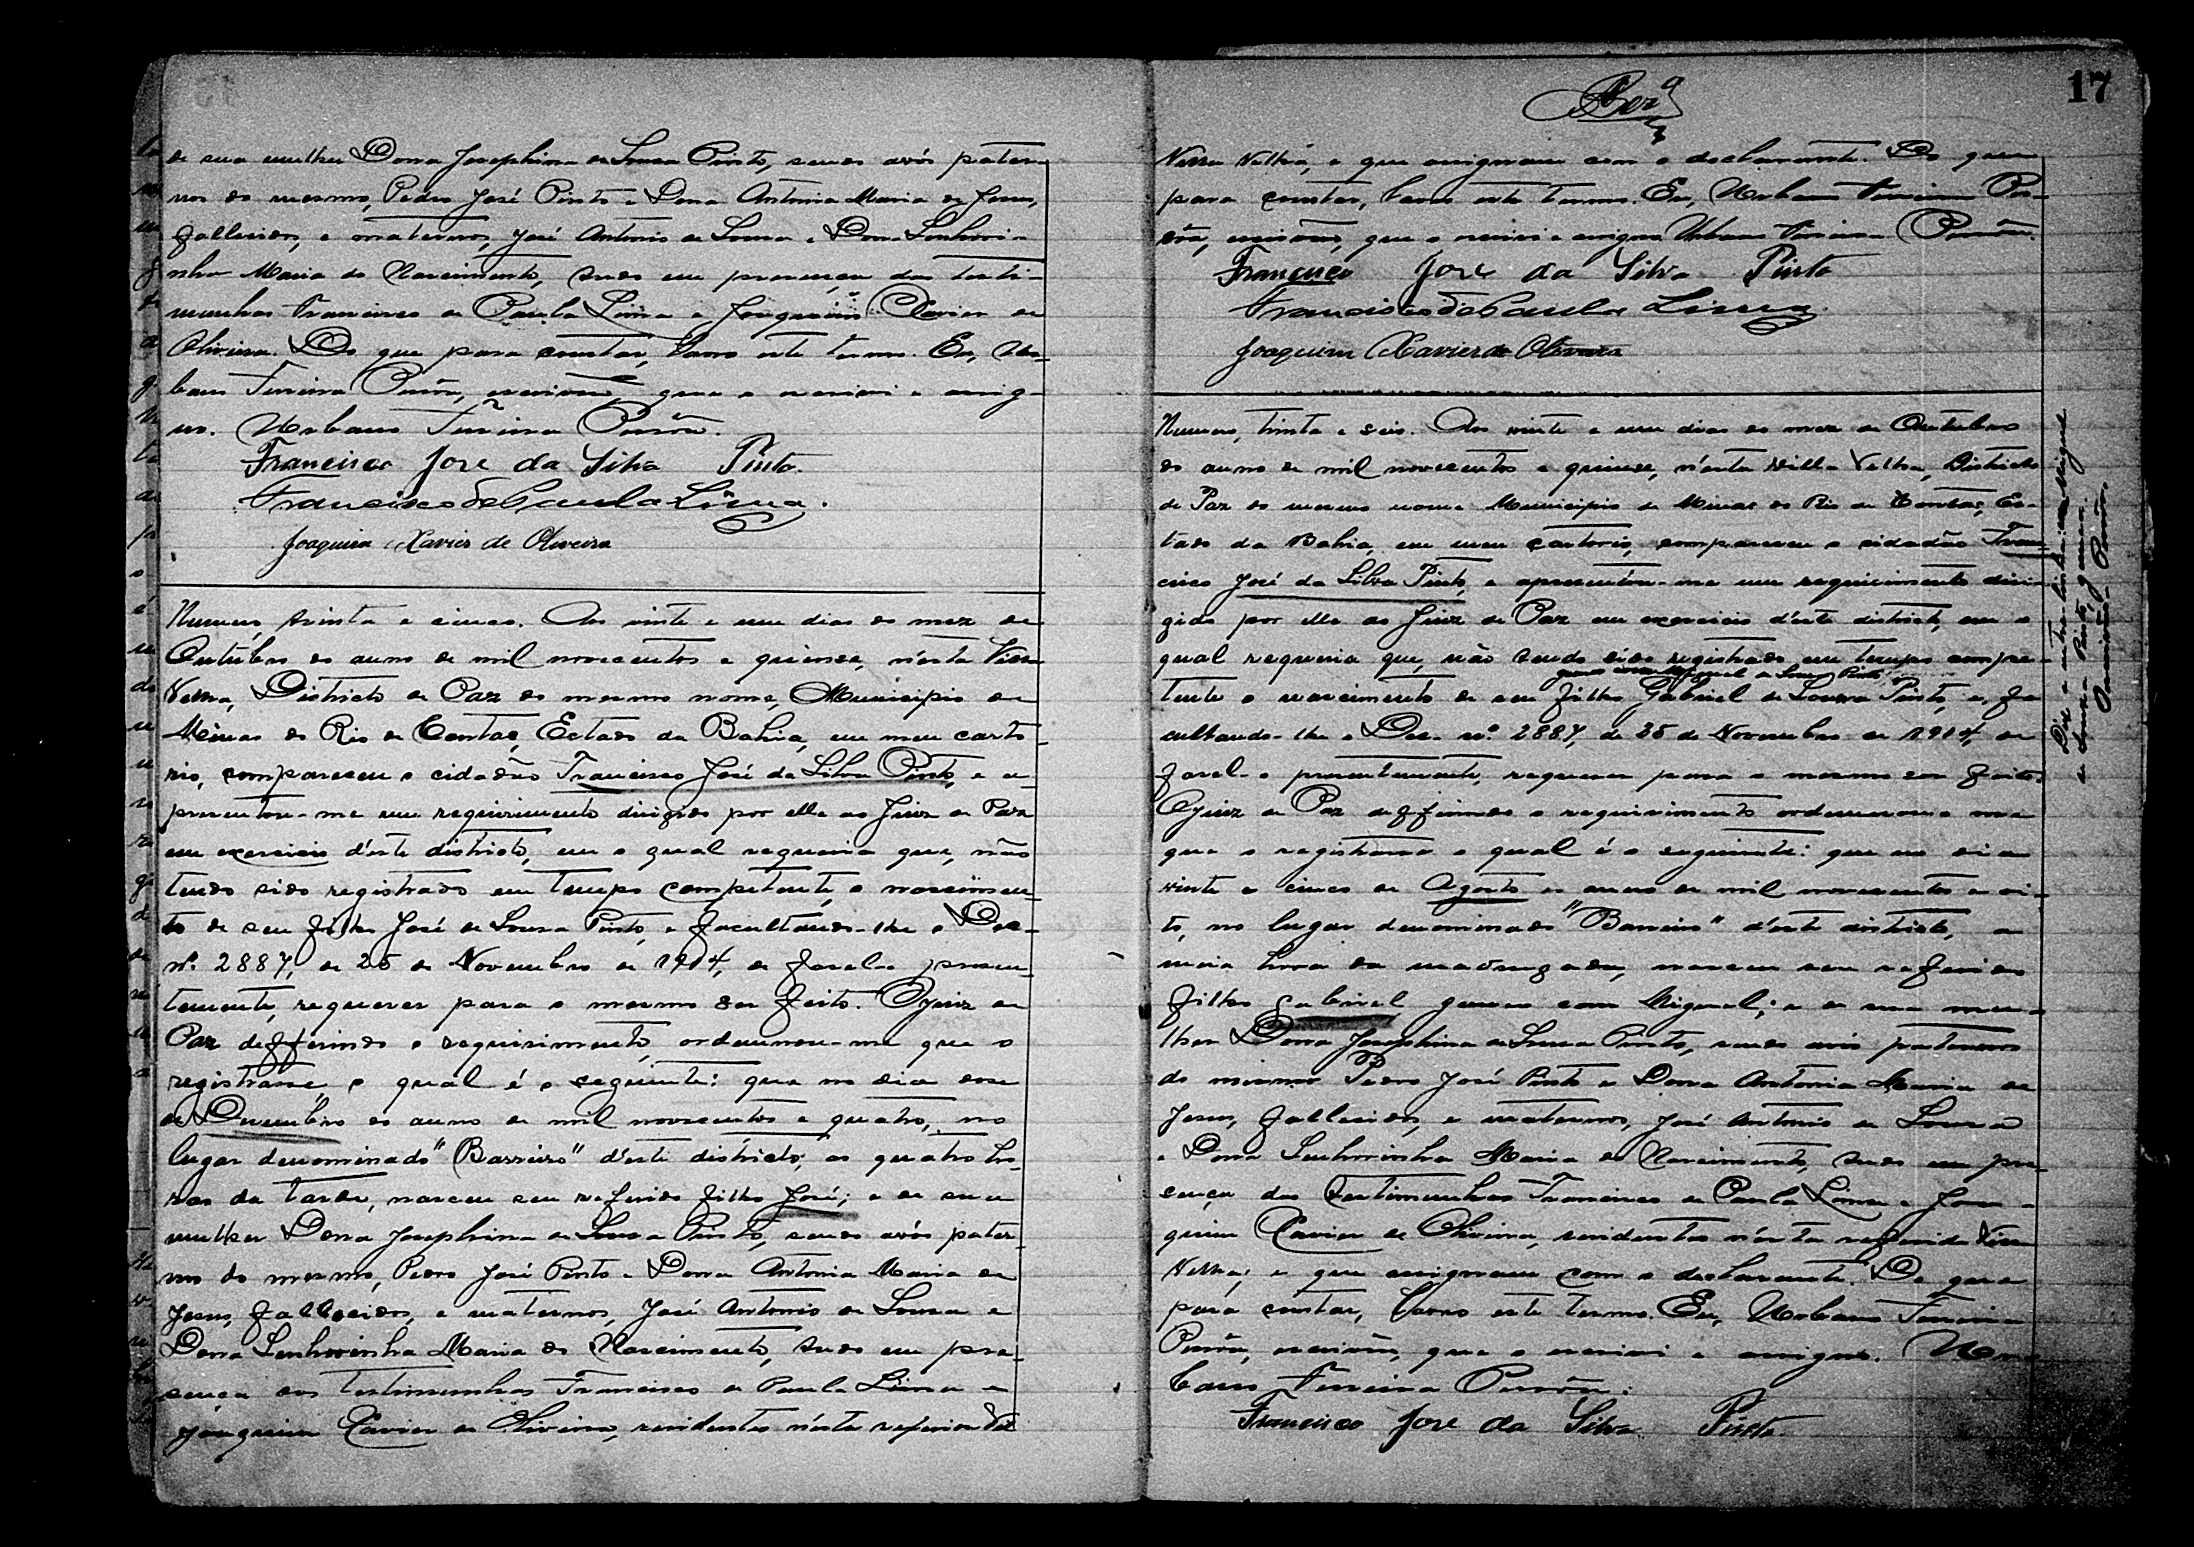 de sua mulher Dona Josephina de Sousa Pinto, sendo avós pater-
nos do mesmo, Pedro José Pinto e Dona Antonia Maria de Jesus,
fallecidos, e maternos, José Antonio de Sousa e Dona Senhori-
nha Maria do Nascimento, sendo em presença das testi-
munhas Francisco de Paula Lima e Joaquim Xavier de
Oliveira. Do que para constar, lavro este termo. Eu, Ur-
bano Ferreira, escrivão, que o escrevi e assig-
no. Urbano Ferreira
Francisco José da Silva Pinto.
Francisco de Paula Lima.
Joaquim Xavier de Oliveira
Numero, trinta e cinco. Aos vinte e um dias do mez de
Outubro do anno de mil novecentos e quinze, n'esta Villa
Velha, Districto de Paz do mesmo nome, Municipio de
Minas do Rio de Contas, Estado da Bahia, em meu carto-
rio, compareceu o cidadão Francisco José da Silva Pinto, e a-
presentou-me um requirimento dirigido por elle ao Juiz de Paz
em exercicio d'este districto, em o qual requeria que, não
tendo sido registrado em tempo competente, o nascimen-
to de seu filho José de Sousa Pinto, e facultando-lhe o Dec.
nº 2887, de 25 de Novembro de 1914, de fasel-o presen-
temente, requerer para o mesmo ser feito. O Juiz de
Paz defferindo o requirimento, ordennou-me que o
registrasse, o qual é o seguinte: que no dia dose
de Desembro do anno de mil novecentos e quatro, no
lugar denominado "Barreiro" d'este districto, as quatro ho-
ras da tarde, nasceu seu referido filho José; e de sua
mulher Dona Josephina de Sousa Pinto, sendo avós pater-
nos do mesmo, Pedro José Pinto e Dona Antonia Maria de
Jesus, fallecidos, e maternos, José Antonio de Sousa e
Dona Senhorinha Maria do Nascimento, sendo em pre-
sença das testimunhas Francisco de Paula Lima e
Joaquim Xavier de Oliveira, residentes n'esta referida Vil-
17
Velha, e que assignam com o declarante. Do que
para constar, lavro este termo. Eu, Urbano Ferreira
escrivão, que o escrevi e assigno. Urbano Ferreira
Francisco José da Silva Pinto
Francisco de Paula Lima.
Joaquim Xavier de Oliveira
Numero, trinta e seis. Aos vinte e um dias do mez de Outubro
do anno de mil novecentos e quinze, n'esta Villa Velha, Districto
de Paz do mesmo nome Municipio de Minas do Rio de Contas, Es-
tado da Bahia, em meu cartorio, compareceu o cidadão Fran-
cisco José da Silva Pinto, e apresentou-me um requirimento diri-
gido por elle ao Juiz de Paz em exercicio d'este districto, em o
qual requeria que, não tendo sido registrado em tempo compe-
gemeo com Miguel de Sousa Pinto
tente o nascimento de seu filho Gabriel de Sousa Pinto, e, fa-
cultando-lhe o Dec. nº 2887, de 25 de Novembro de 1914, de
fasel-o presentemente, requerer para o mesmo ser feito.
O Juiz de Paz defferindo o requirimento ordennou-me
que o registrasse o qual é o seguinte: que no dia
vinte e cinco de Agosto do anno de mil novecentos e oi-
to, no lugar denominado "Barreiro" d'este districto, a
meia hora da madrugada, nasceu seu referido
filho Gabriel gemeo com Miguel; e de sua mu-
lher Dona Josephina de Sousa Pinto, sendo avós paternos
do mesmo Pedro José Pinto e Dona Antonia Maria de
Jesus, fallecidos, e maternos, José Antonio de Sousa
e Dona Senhorinha Maria do Nascimento, sendo em pre-
sença das testimunhas Francisco de Paula Lima e Joa-
quim Xavier de Oliveira, residentes n'esta referida Villa
Velha; e que assignam com o declarante. Do que
para constar, lavro este termo. Eu, Urbano Ferreira
escrivão, que o escrevi e assigno. Ur-
bano Ferreira
Francisco José da Silva Pinto.
Diz a entre-linha: com Miguel
de Sousa Pinto, gemeo.